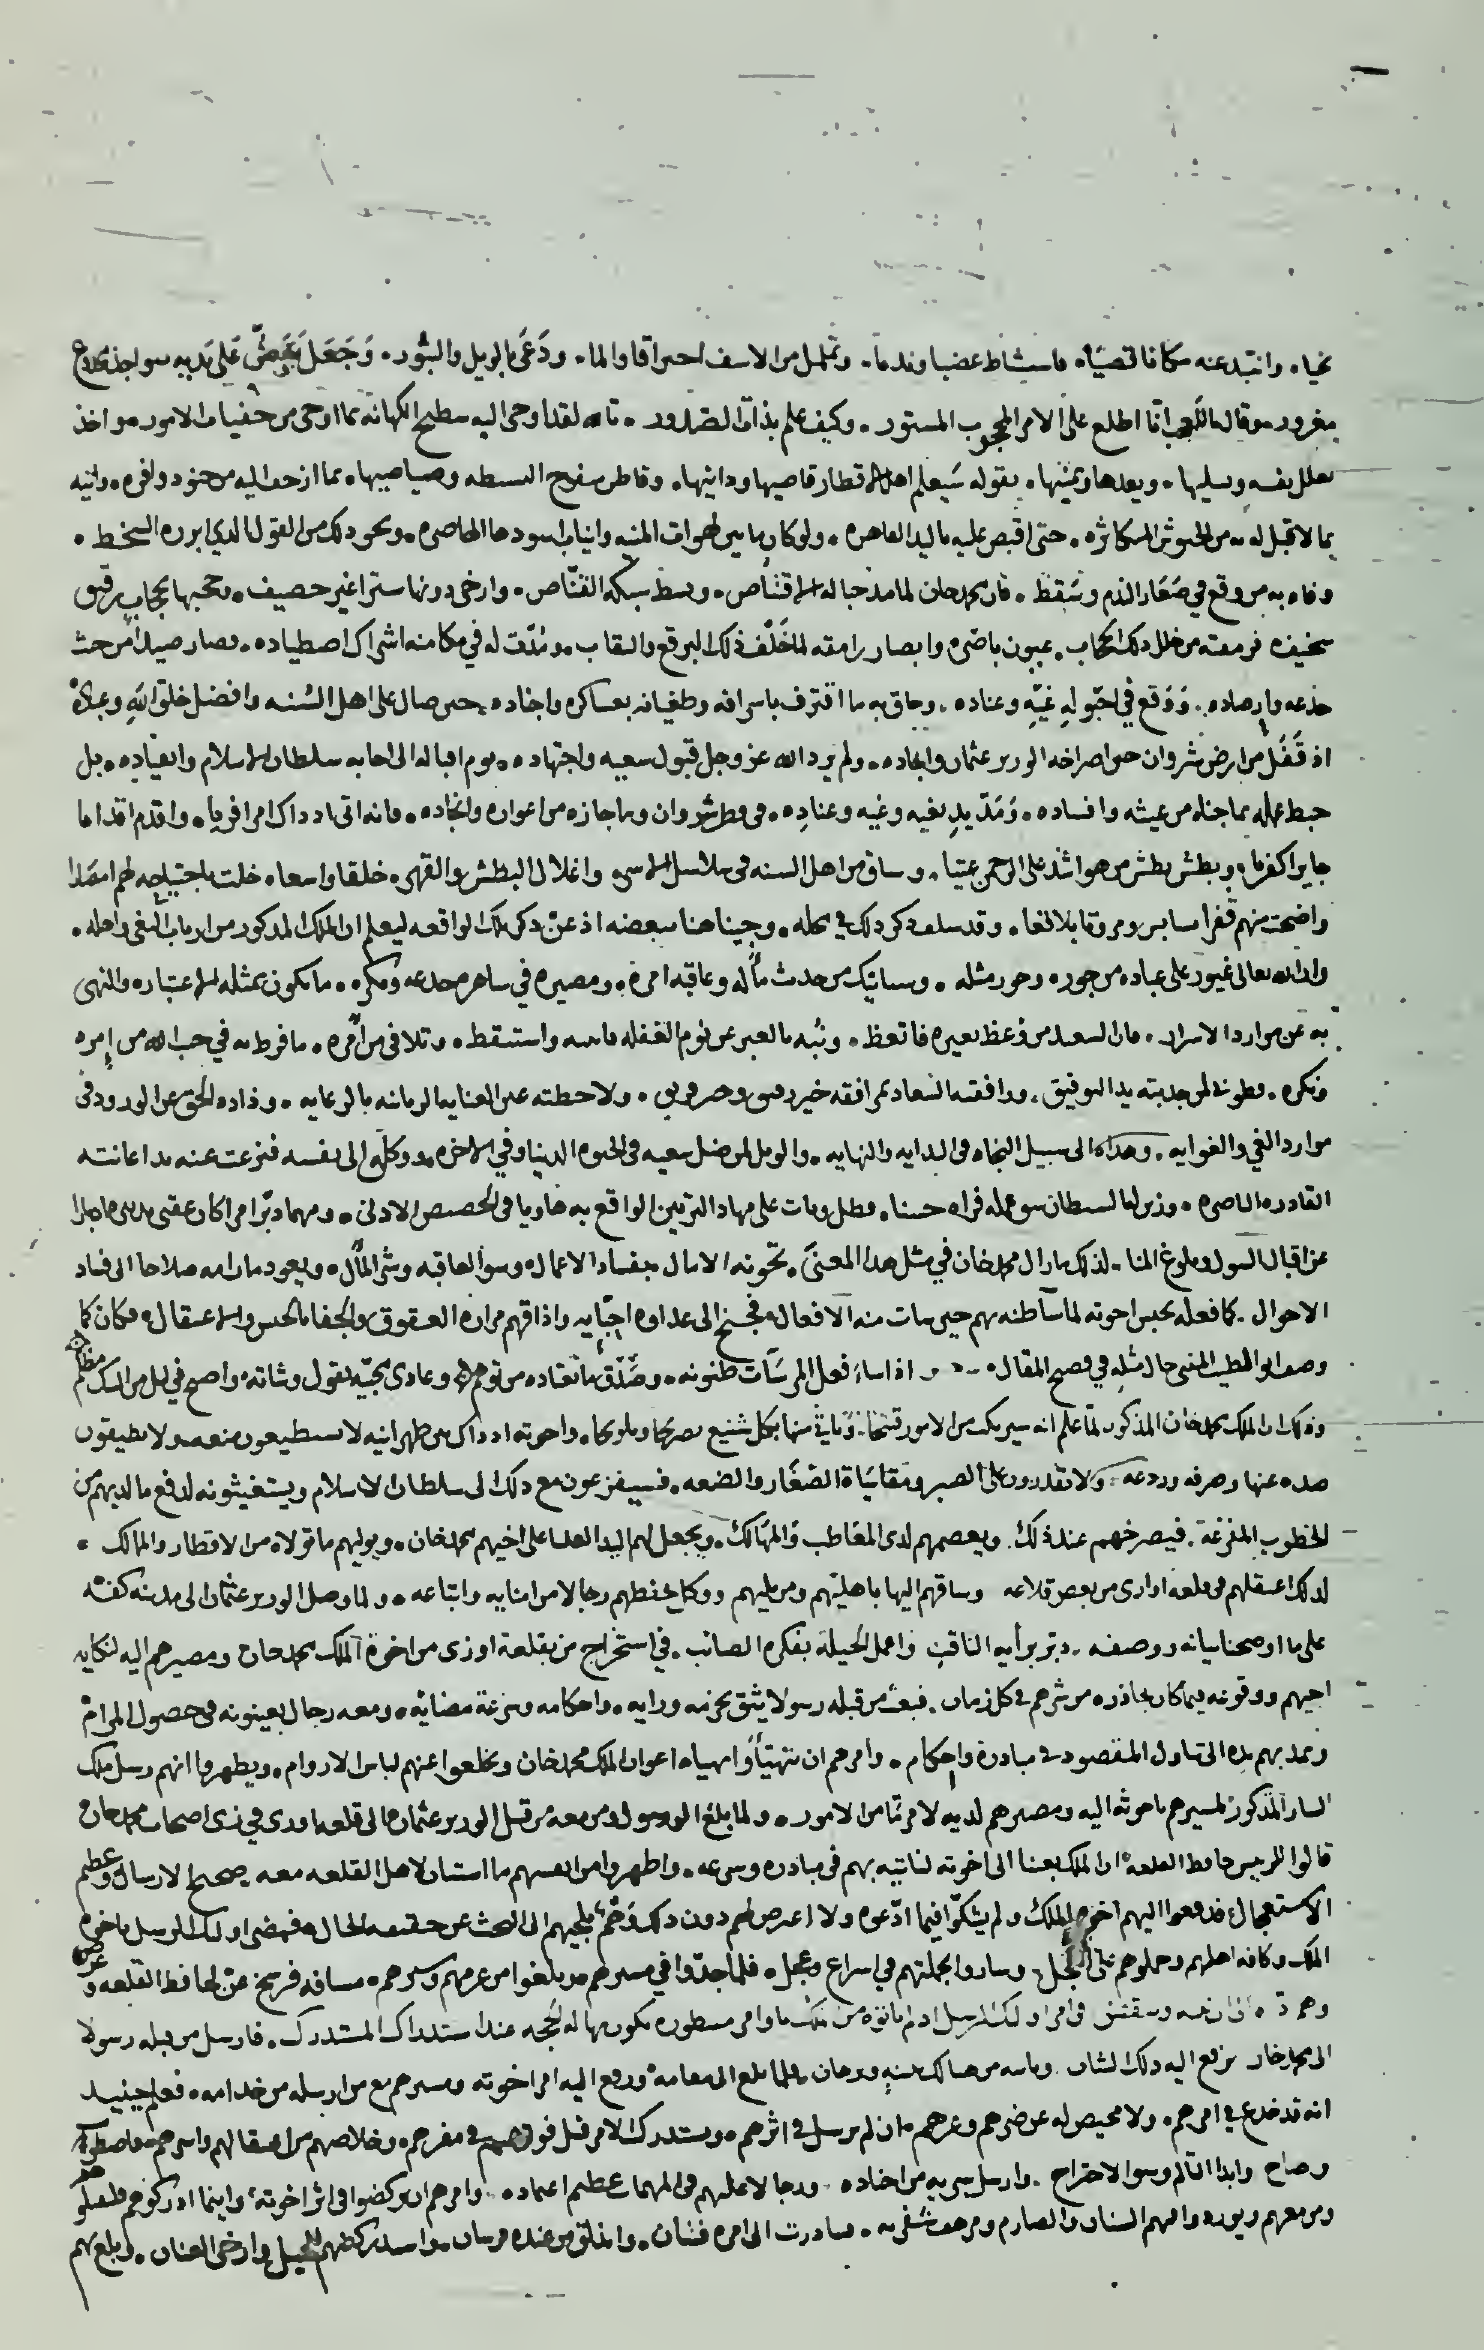 نجيا، وانتبذ عنه مكانا قصيّا، فاستشاط غضبا وندما، وتململ من الاسف احتراقا والما، ودَعَى بالويل والثبور، وَجَعَلَ يَعَضُّ عَلى يَديه بنواجذ
مغرور، وقال انّا اطلع على الامر المحجوب المستور، وكيف علم بذات الصدور، تالله لقد اوحى اليه سطيح الكهانة بما اوحى من خفيات الامور، واخذ
يعلل نفسه ويسليها، ويعدها ويمنيها، بقوله سَيَعلم اهل الاقطار قاصيها ودانيها، وصياصيها، بما ازحف اليه من جنود وافره، واتيه
بما لا قبل له به من الجيوش المتكاثره، حتى اقبض عليه باليد القاهره، ولو كان ما بين لهوات المنيه وانياب اسودها الهاصره، ونحو ذلك من القول الذي ابرزه السخط،
وفاه به من وقع في صَغَار الذم وسَقط، فان محمد خان لما مد حباله للاقتناص، وبسط شبكة القنّاص، وارخى دونها ستراً غير حصيف، وحجبها بحجاب رقيق
سخيف، فرمقته من خلل ذلك الحجاب، عيون باصَره وابصار رامقه لما خَلْف ذلك البرقع والنقاب، ومُدّت له في مكامنه اشراك اصطياده، فصار صيداً من حيث
خدعه وارصاده، وَوَقع في احبُولةِ غيّهِ وعناده، وحاق به ما اقترف باسرافه وطغيانه بعساكره واجناده، حتى صال على اهل السُنه وافضل خلق الله وعباده
اذ قَفَل من ارض شروان حين اصراخه الوزير عثمان وانجاده، ولم يرد الله عز وجل قبول سعيه واجتهاده، يوم اقباله الى اجابه سلطان الاسلام وانقياده، بل
حبط عمله بما جناه من عيثه وافساده، وَمَدّ يدِ بغيه وغيه وعنادِه، في قطر شروان وما جازه من اغواره وانجاده، فانه اتى اذ ذاك امرا فريا، واقدم اقداما
جايرا كفريا، وبطش بطش من هو اشد على الرحمن عتيا، وساق من اهل السنه في سلاسل الاسى واغلال البطش والقهر، خلقا واسعا، خلت باجتياحه لهم امصارا
واضحت منهم قفرا سابس ومروتا بلاقعا، وقد سلف ذكر ذلك في محله، وجينا هنا ببعضه اذ عنّ ذكر تلك الواقعه ليعلم ان الملك المذكور من ارباب البغي واهله،
وان الله تعالى غيور على عباده من جوره وجور مثله، وسياتيك من حديث مآله وعاقبة امره، ومصيره في ساهر خدعه ومكره، ما يكون بمثله الاعتبار، والنهى
به عن موارد الاسرار، فان السعيد من وُعظ بغيره فاتعظ، ونُبه بالعبر عن نوم الغفله فانتبه واستيقظ، وتلافى من امره، ما فرط به في جنب الله من إمره
ونكره، فطوبى لمن جذبته يد التوفيق، ورافقته السعاده مرافقة خير رفيق وخير فريق، ولاحظته عين العنايه الربانيه بالرعايه، وذاده الحق عن الورود في
موارد الغي والغوايه، وهداه الى سبيل النجاه في البدايه والنهايه، والويل لمن ضل سعيه في الحيوه الدنيا وفي الاخره، ووكله الى نفسه فنزعت عنه يد اعانته
القادره الناصره، وزين له الشيطان سوء عمله فراه حسنا، فظل وبات على مهاد التزيين الواقع به هاويا في الحضيض الادنى، ومهما دبّر امرا كان عقبى تدبيره
عن اقبال السول وبلوغ المنا، لذلك ما زال محمد خان في مثل هذا المعنَى، تخونه الامال بفساد الاعمال وسوء العاقبه وشر المآل، ويعود ما رامه صلاحا الى فساد
الاحوال، كما فعله بحبس اخوته لما سآ ظنه بهم حين ساءت منه الافعال، فجنح الى عداوه احبّايه واذاقهم مراره العقوق والجفا بالحبس والاعتقال، فكان كما
وصف ابو الطيب المتنبي حال مثله في فصيح المقال، اذا ساءَ فعل المر سَآءت ظنونه، وصَدّق ما يعتاده من توهم، وعادى محبّيه بقول وشاته، واصبح في ليل من الشك مظلم
وذلك ان الملك محمد خان المذكور لمّا علم انه سيركب من الامور قبيحَا، وَياتي منها بكل شنيع تصريحا وتلويحا، واخوته اذ ذاك بين ظهرانيه لا يستطيعون منعه ولا يطيقون
صده عنها وصرفه وردعه، ولا يقدرون على الصبر ومقاسَاة الصّغَار والضعه، فسيفزعون مع ذلك الى سلطان الاسلام ويستغيثونه لدفع ما لديهم من
الخطوب المفزعة، فيصرخهم عند ذلك، ويعصمهم لدى المعَاطب وَالمهَالك، ويجعل لهم اليد العليا على اخيهم محمد خان، ويوليهم ما تولاه من الاقطار والممالك،
لذلك اعتقلهم في قلعة اوارى من بعض قلاعه وساقهم اليها باهليهم ومن يليهم ووكل بحفظهم رجالا من امنايه واتباعه، ولما وصل الوزير عثمان الى مدينه كفه
على ما اوضحنا بيانه ووصفه، دبّر برأيه الثاقب واعمل الحيلة بفكره الصائب، في استخراج من بقلعة اوزى من اخوة الملك محمد خان ومصيرهم اليه لنكايه
اخيهم ووقوعه فيما كان يحاذره من شرهم في كل زمان، فبعث من قبله رسولا يثق بحزمه ورايه، واحكامه وسرعة مضائه، ومعه رجال يعينونه في حصول المرام
ويمد بهم يده الى تناول المقصود في مبادرة واحكام، وامرهم ان يتهيّأوا بهياه اعوان الملك محمد خان ويخلعوا عنهم لباس الاروام، ويظهروا انهم رسل ملك
التتار المذكور لمسيرهم باخوته اليه ومصيرهم لديه لامر ما من الامور، ولما بلغ الرسول ومن معه من قبل الوزير عثمان الى قلعة اوزى في زى اصحاب محمد خان
قالوا للرييس حافظ القلعه ان الملك بعثنا الى اخوته لناتيه بهم في مبادره وسرعه، واظهروا من انفسهم ما استبان لاهل القلعه معه صحة الارسال وعظم
الاستعجال، فدفعوا اليهم اخوه الملك ولم يشكوا فيما ادّعوه ولا اعترض لهم دون ذلك وَهْمٌ يلجيهم الى البحث عن حقيقه الحال، فمضى اولئك الرسل باخوه
الملك وكافه اهلهم وحملوهم على الخيل، وساروا بجملتهم في اسراع وعجل، فلما جدّوا في مسيرهم وبلغوا من عزمهم وسيرهم، مسافه فرسخ عنّ لحافظ القلعه وعرض
الى محمد خان يرفع اليه ذلك الشان وياتيه من هنالك ببينه وبرهان، فلما بلغ الى مقامه ورفع اليه امر اخوته ومسيرهم مع من ارسله من خدامه، فعلم حينيذ
انه قد خدع في امرهم، ولا محيص له عن ضرهم وعرهم، ان لم يرسل في اثرهم، ويستدرك الامر قبل فوتهم في مفرهم، وخلاصهم من اعتقالهم واسرهم
وصاح وابدا التالم وسوء الاجتراح، وارسل سريه من اجناده، ورجالا عليهم في المهمات عظيم اعتماده، وامرهم ان يركضوا في اثر اخوته، واينما ادركوهم
ومن معهم السنان والصارم ومرهف شفرته، فبادرت الى امره فتيان، وانطلق من عنده فرسان، الخيل وارخى العنان، بلغ بهم